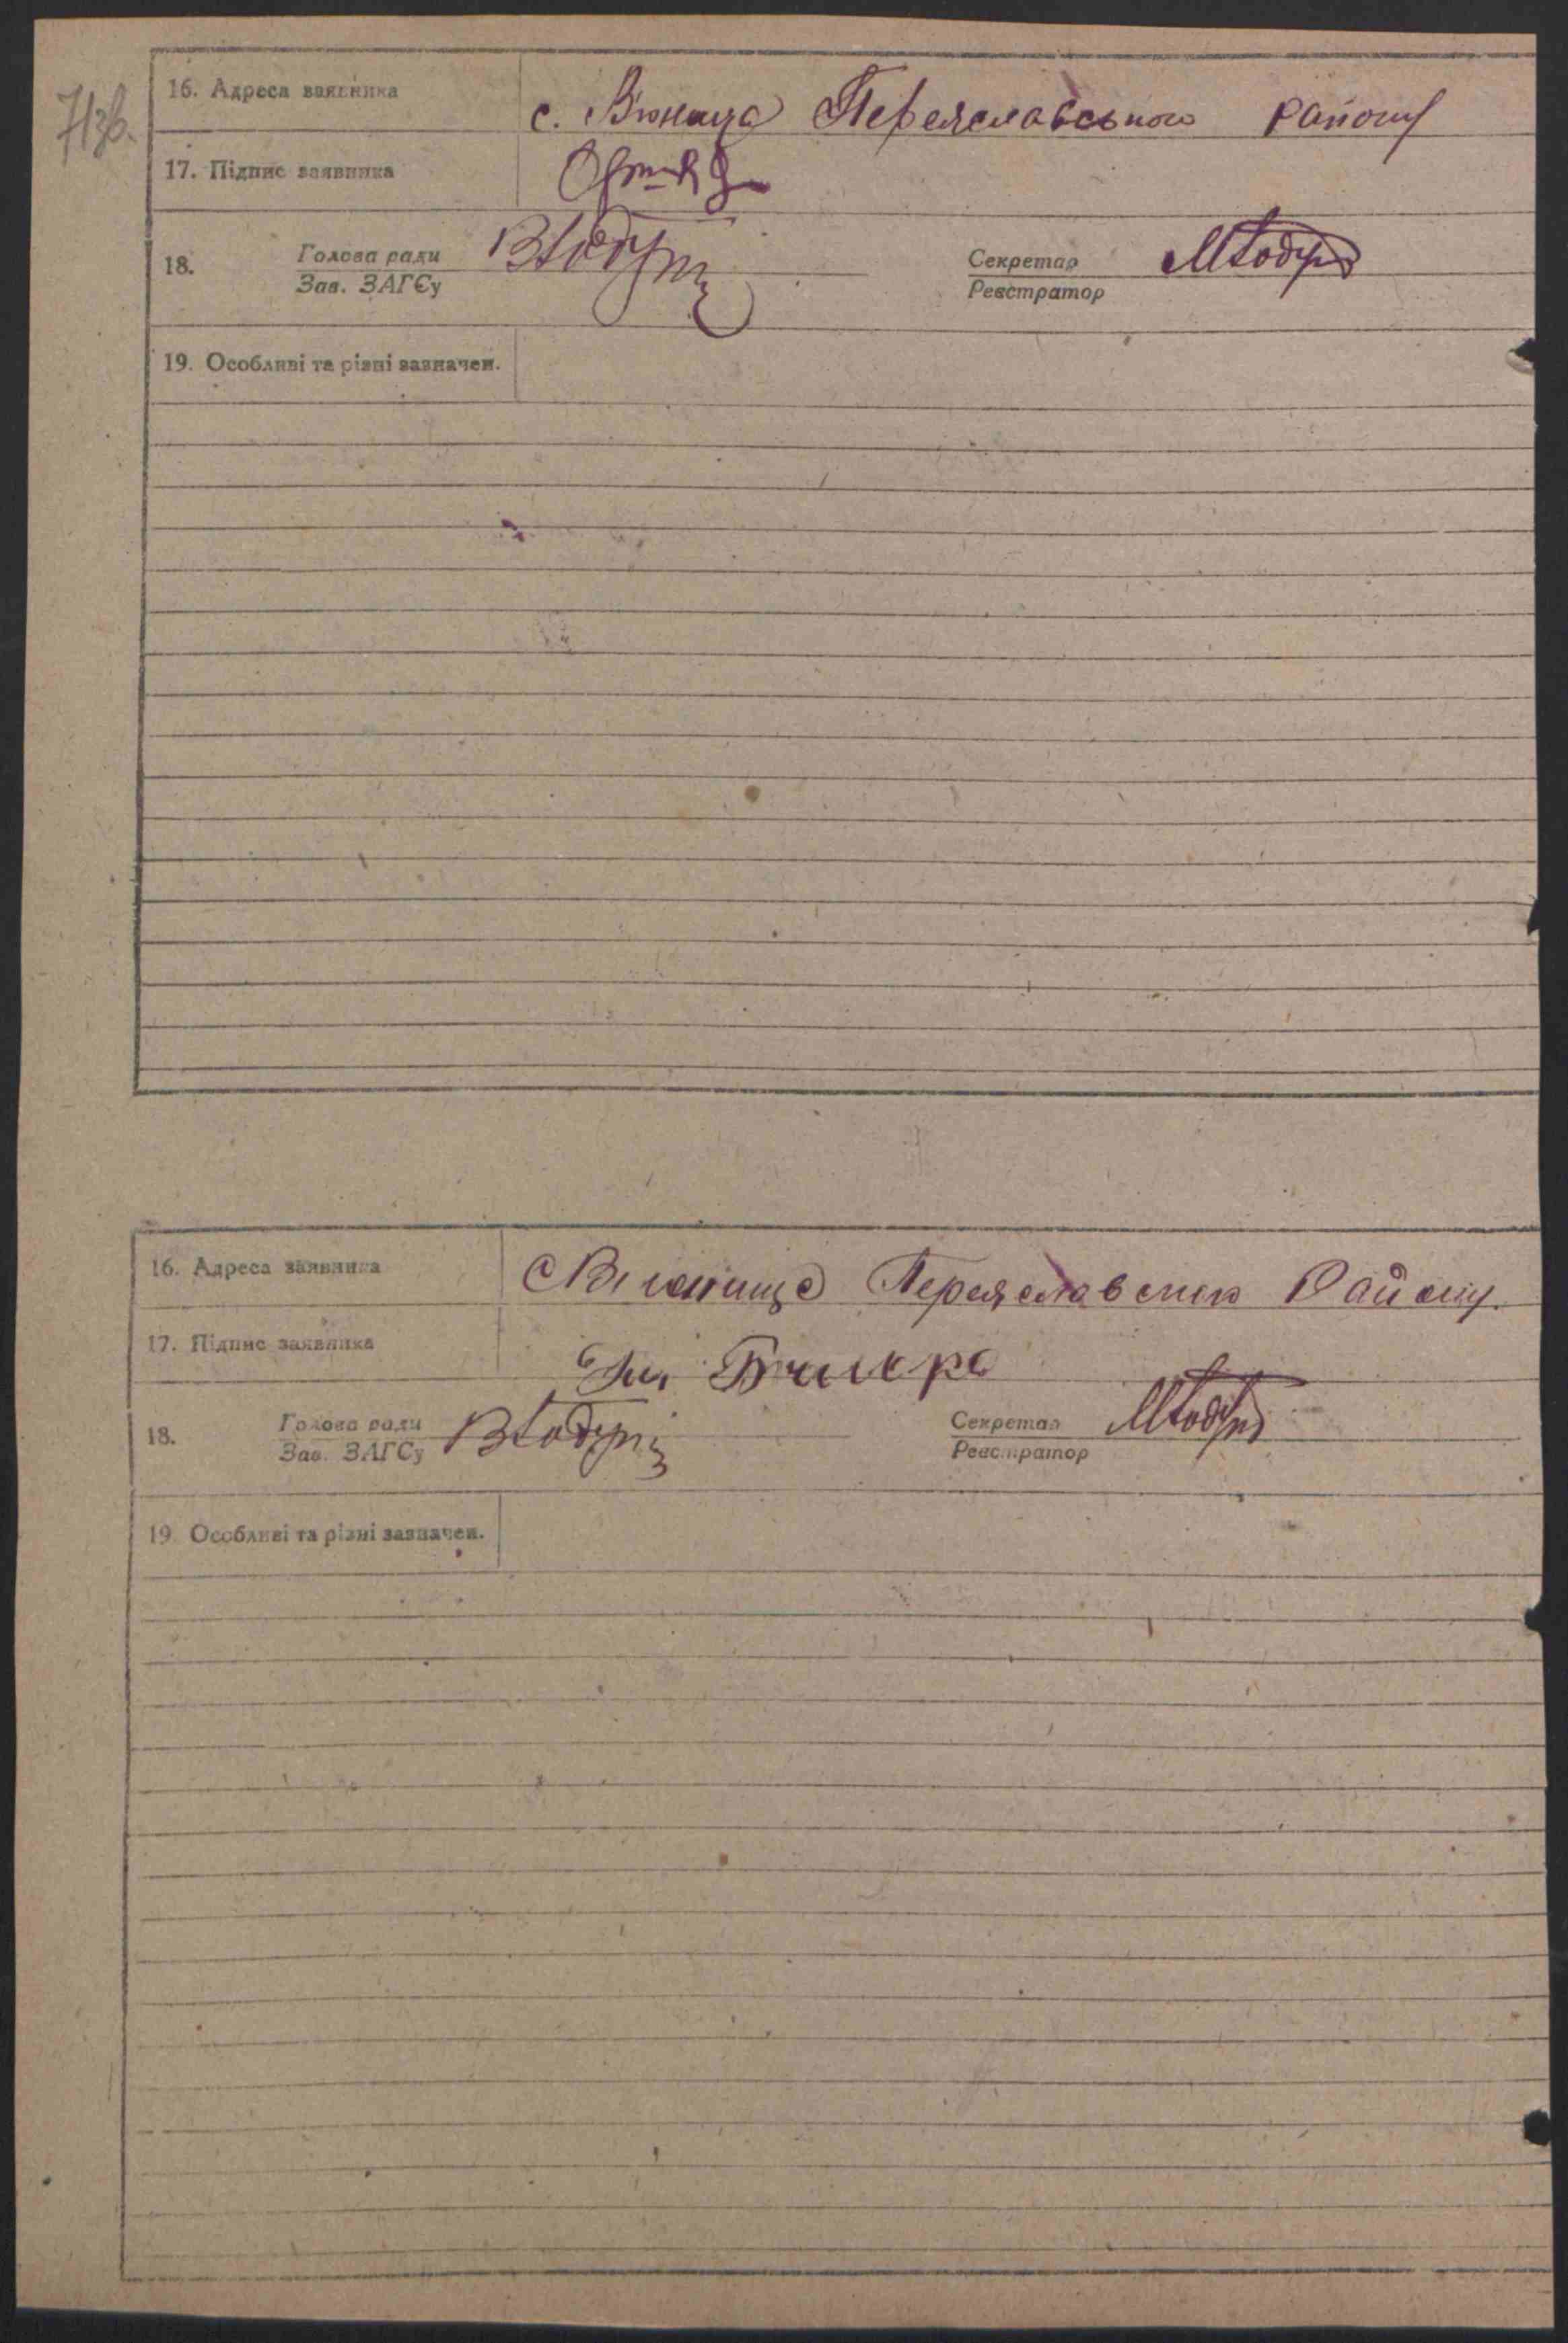 71зв.
16. Адреса заявника с. Вюнища Переяславського району
17. Підпис заявника
18. Голова ради Секретар
Зав. ЗАГСу Реєстратор
19. Особливі та різні зазначен.
16. Адреса заявника с Вюнище Переяславськ Району.
17. Підпис заявника
18. Голова ради Секретар
Зав. ЗАГСу Реєстратор
19. Особливі та різні зазначен.